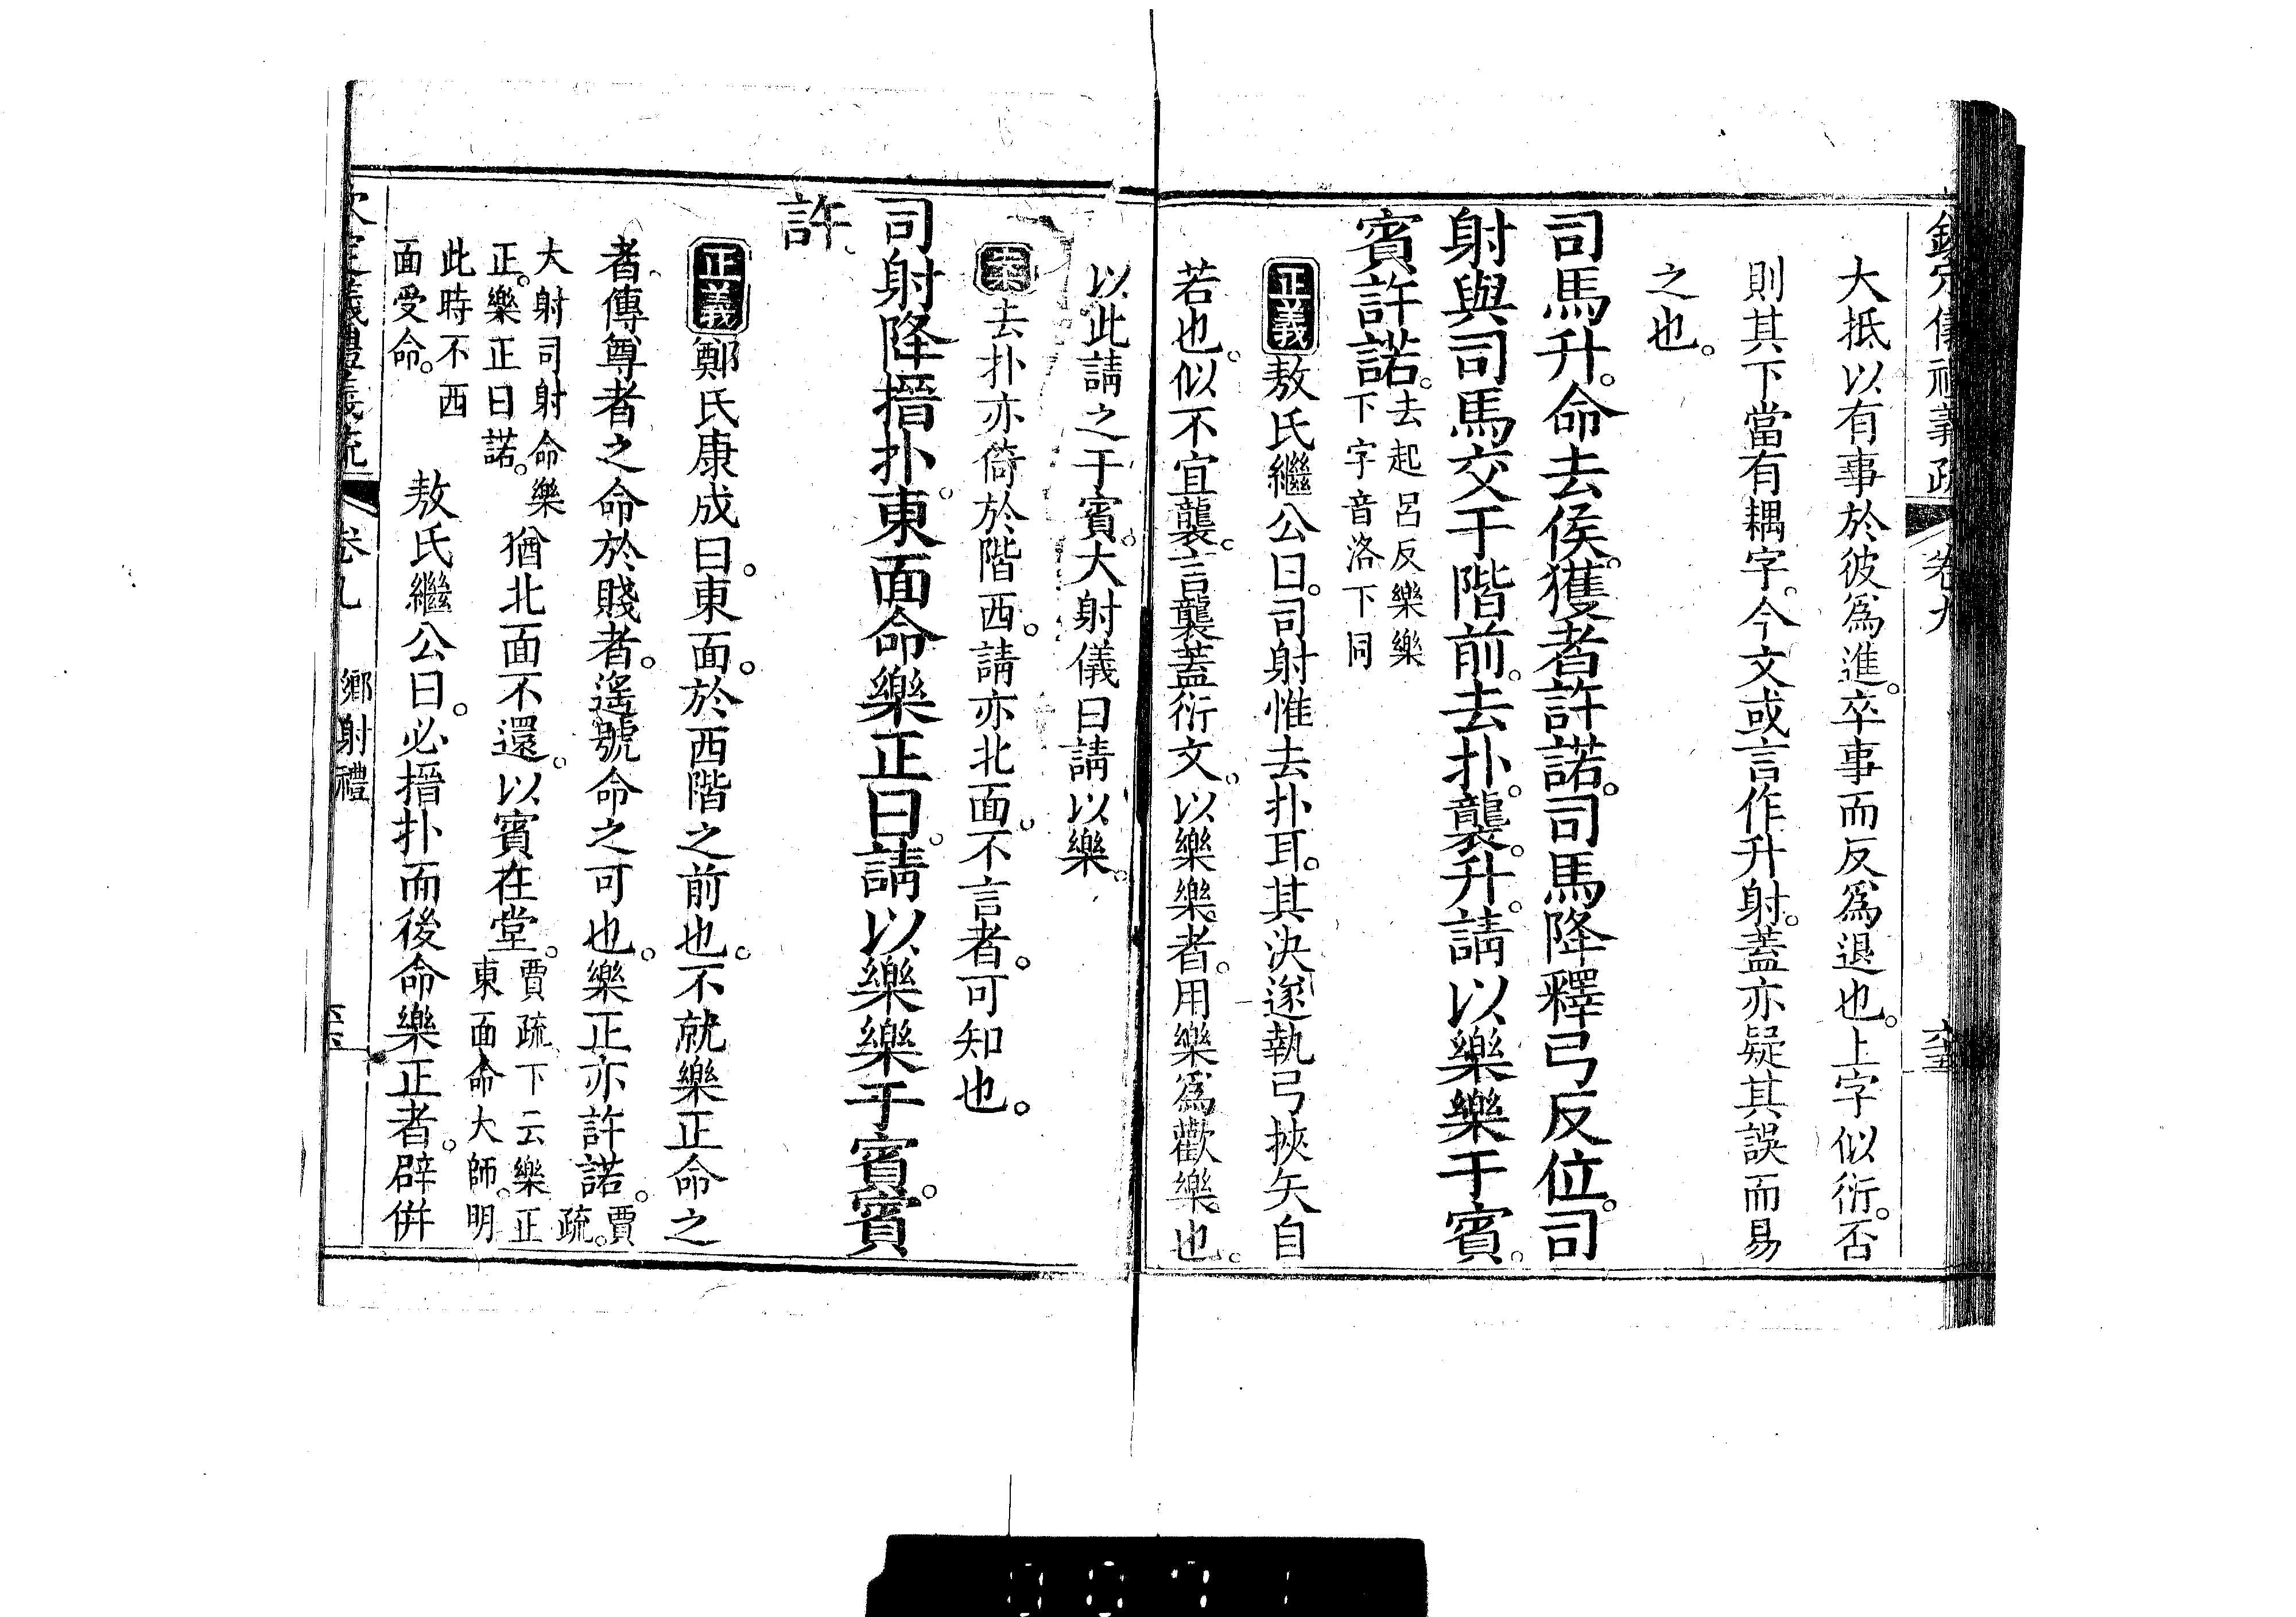 大抵以有事於彼爲進。卒事而反爲退也。上字似衍。否
則其下當有耦字。今文或言作升射。蓋亦疑其誤而易
之也。
司馬升。命去侯。獲者許諾。司馬降釋弓反位。司
射與司馬交于階前。去扑。襲。升。請以樂樂于賓。
賓許諾。去起呂反樂樂
下字音洛下同
正義敖氏繼公曰。司射惟去扑耳。其決遂執弓挾矢自
若也。似不宜襲。言襲蓋衍文。以樂樂者。用樂爲歡樂也。
以此請之于賓。大射儀曰請以樂。
案去扑亦倚於階西。請亦北面。不言者。可知也。
司射降搢扑。東面命樂正曰。請以樂樂于賓。賓
許。
正義鄭氏康成曰。東面。於西階之前也。不就樂正命之
者。傳尊者之命於賤者。遙號命之可也。樂正亦許諾。賈
疏。
大射司射命樂
正。樂正曰諾。猶北面不還。以賓在堂。賈疏下云樂正
東面命大師。明
此時不西
面受命。敖氏繼公曰。必搢扑而後命樂正者。辟併
卷九 鄉射禮